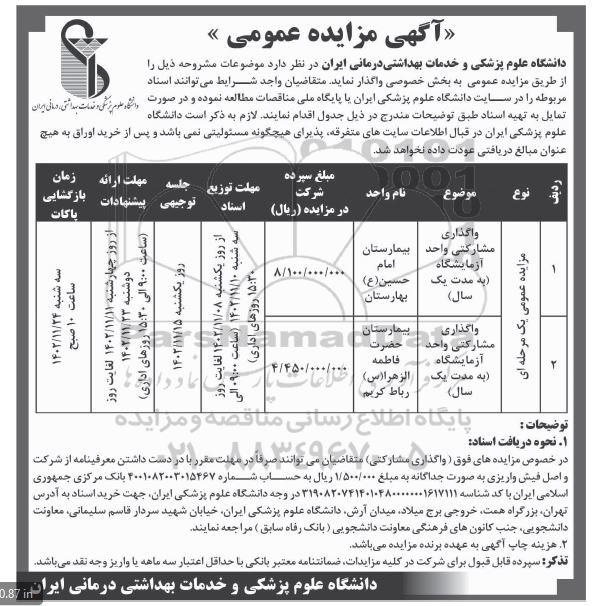 «آگهی مزایده عمومی»
دانشگاه علوم پزشکی و خدمات بهداشتی، درمانی ایران
دانشگاه علوم پزشکی و خدمات بهداشتی‌درمانی ایران در نظر دارد موضوعات مشروحه ذیل را
از طریق مزایده عمومی به بخش خصوصی واگذار نماید. متقاضیان واجد شرایط می‌توانند اسناد
مربوطه را در سایت دانشگاه علوم پزشکی ایران یا پایگاه ملی مناقصات مطالعه نموده و در صورت
تمایل به تهیه اسناد طبق توضیحات مندرج در ذیل جدول اقدام نمایند. لازم به ذکر است دانشگاه
علوم پزشکی ایران در قبال اطلاعات سایت های متفرقه، پذیرای هیچگونه مسئولیتی نمی باشد و پس از خرید اوراق به هیچ
عنوان مبالغ دریافتی عودت داده نخواهد شد.
ردیف
نوع
موضوع
نام واحد
مبلغ سپرده
شرکت
در مزایده (ریال)
مهلت توزیع
اسناد
جلسه
توجیهی
مهلت ارائه
پیشنهادات
زمان
بازگشایی
پاکات
۱
مزایده عمومی یک مرحله ای
واگذاری
مشارکتی واحد
آزمایشگاه
(به مدت یک
سال)
بیمارستان
امام
حسین(ع)
بهارستان
۸/۱۰۰/۰۰۰/۰۰۰
از روز یکشنبه ۱۴۰۲/۱۱/۰۸ لغایت روز
سه شنبه ۱۴۰۲/۱۱/۱۰ (ساعت ۰۹:۰۰ الی
۱۵:۳۰ روزهای اداری)
روز یکشنبه ۱۴۰۲/۱۱/۱۵
از روز چهارشنبه ۱۴۰۲/۱۱/۱۱ لغایت روز
دوشنبه ۱۴۰۲/۱۱/۲۳
(ساعت ۹:۰۰ الی ۱۵:۳۰ روزهای اداری)
سه شنبه ۱۴۰۲/۱۱/۲۴
ساعت ۱۰ صبح
۲
واگذاری
مشارکتی واحد
آزمایشگاه
(به مدت یک
سال)
بیمارستان
حضرت
فاطمه
الزهرا(س)
رباط کریم
۴/۴۵۰/۰۰۰/۰۰۰
توضیحات :
۱. نحوه دریافت اسناد:
در خصوص مزایده های فوق (واگذاری مشارکتی) متقاضیان می توانند صرفاً در مهلت مقرر با در دست داشتن معرفینامه از شرکت
و اصل فیش واریزی به صورت جداگانه به مبلغ ۱/۵۰۰/۰۰۰ ریال به حساب شماره ۴۰۰۱۰۸۲۰۰۳۰۱۵۴۶۷ بانک مرکزی جمهوری
اسلامی ایران با کد شناسه ۳۱۹۰۸۲۰۷۴۱۴۰۱۰۴۸۰۰۰۰۰۰۰۱۶۱۷۱۱۱ در وجه دانشگاه علوم پزشکی ایران، جهت خرید اسناد به آدرس
تهران، بزرگراه همت، خروجی برج میلاد، میدان آرش، دانشگاه علوم پزشکی ایران، خیابان شهید سردار قاسم سلیمانی، معاونت
دانشجویی، جنب کانون های فرهنگی معاونت دانشجویی (بانک رفاه سابق) مراجعه نمایند.
۲. هزینه چاپ آگهی به عهده برنده مزایده می‌باشد.
تذکر: سپرده قابل قبول برای شرکت در کلیه مزایدات، ضمانتنامه معتبر بانکی با حداقل اعتبار سه ماهه یا واریز وجه نقد می‌باشد.
دانشگاه علوم پزشکی و خدمات بهداشتی درمانی ایران
0.87 in
پایگاه اطلاع رسانی مناقصه و مزایده